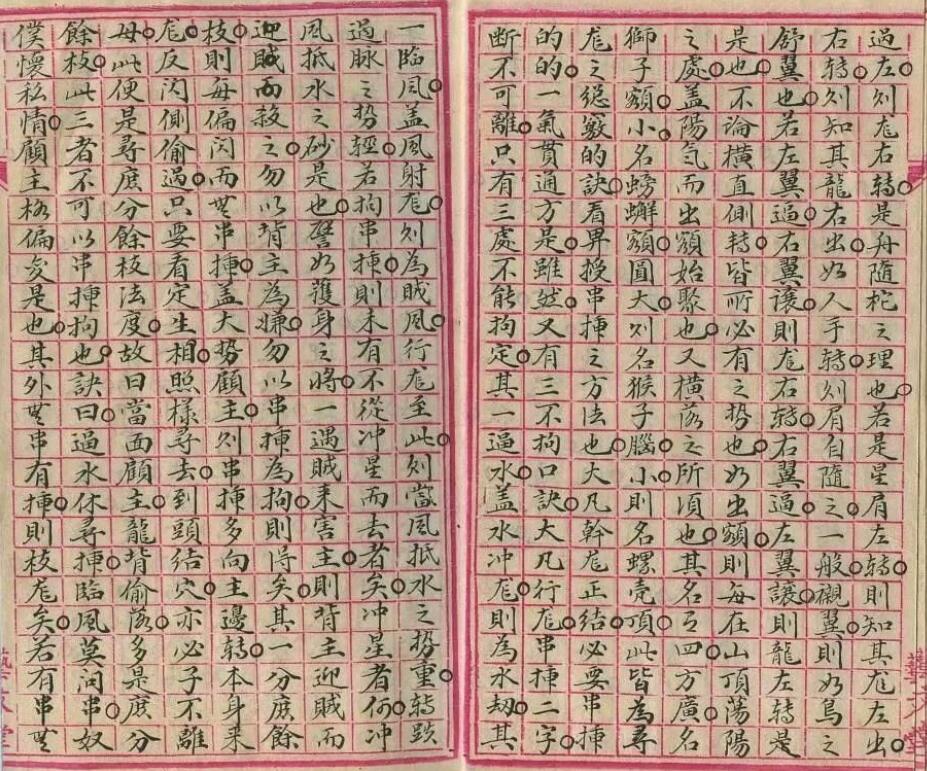 過左刘龙右轉是舟隨柁之理也若是星肩左轉則知其龙左出
右轉刘知其龍右出如人手轉刘肩自隨之一般襯翼則如鳥之
舒翼也若左翼逼右翼讓則龙右轉右翼逼左翼讓則龍左轉是
是也不論橫直側轉皆所必有之势也如出額則每在山頂蕩陽
之處盖陽氣而出額始聚也又橫落之所項也其名曰四方廣名
獅子額小名螃蠏額圓大刘名猴子腦小則名螺壳頂此皆為尋
龙之總竅的訣看畀授串揷之方法也大凡幹龙正結必要串揷
的的一氣貫通方是雖然又有三不拘口訣大凡行龙串揷二字
断不可離只有三處不能拘定其一過水盖水冲龙則為水刼其
一臨風盖風射龙刘為賊風行龙至此刘當風抵水之势重轉跌
過脉之势輕若拘串揷則未有不從冲星而去者矣冲星者何冲
風抵水之砂是也譬如護身之將一遇賊来害主則背主迎賊而
迎賊而殺之勿以背主為嫌勿以串揷為拘則得矣其一分庶餘
枝則每偏闪而無串揷盖大势顧主刘串揷多向主邊轉本身来
龙反闪側偷過只要看定生相照樣尋去到頭結穴亦必子不離
母此便是尋庶分餘枝法度故曰當面顧主龍背偷落多是庶分
餘枝此三者不可以串揷拘也訣曰過水休尋揷臨風莫问串奴
僕懷私情顧主格偏灾是也其外無串有揷則枝龙矣若有串無